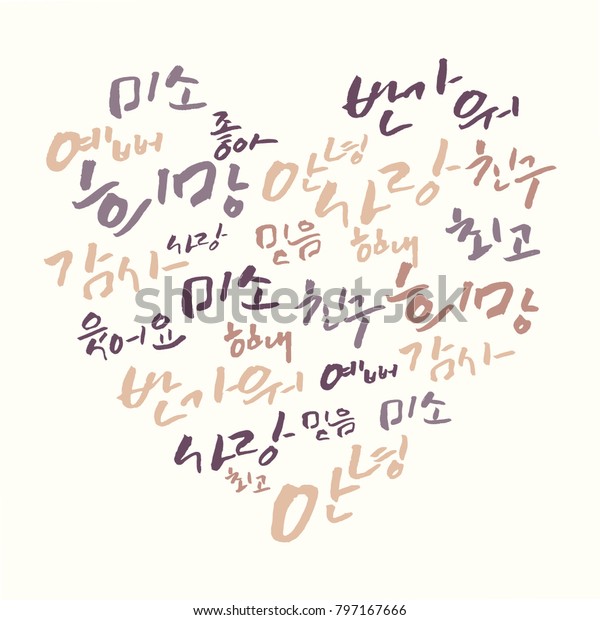 미소
반가워
예뻐
좋아
희망
안녕
사랑
친구
감사
사랑
믿음
힘내
최고
미소
친구
희망
웃어요
힘내
반가워
예뻐
감사
사랑
믿음
미소
최고
안녕
shutterstock
shutterstock.com · 797167666